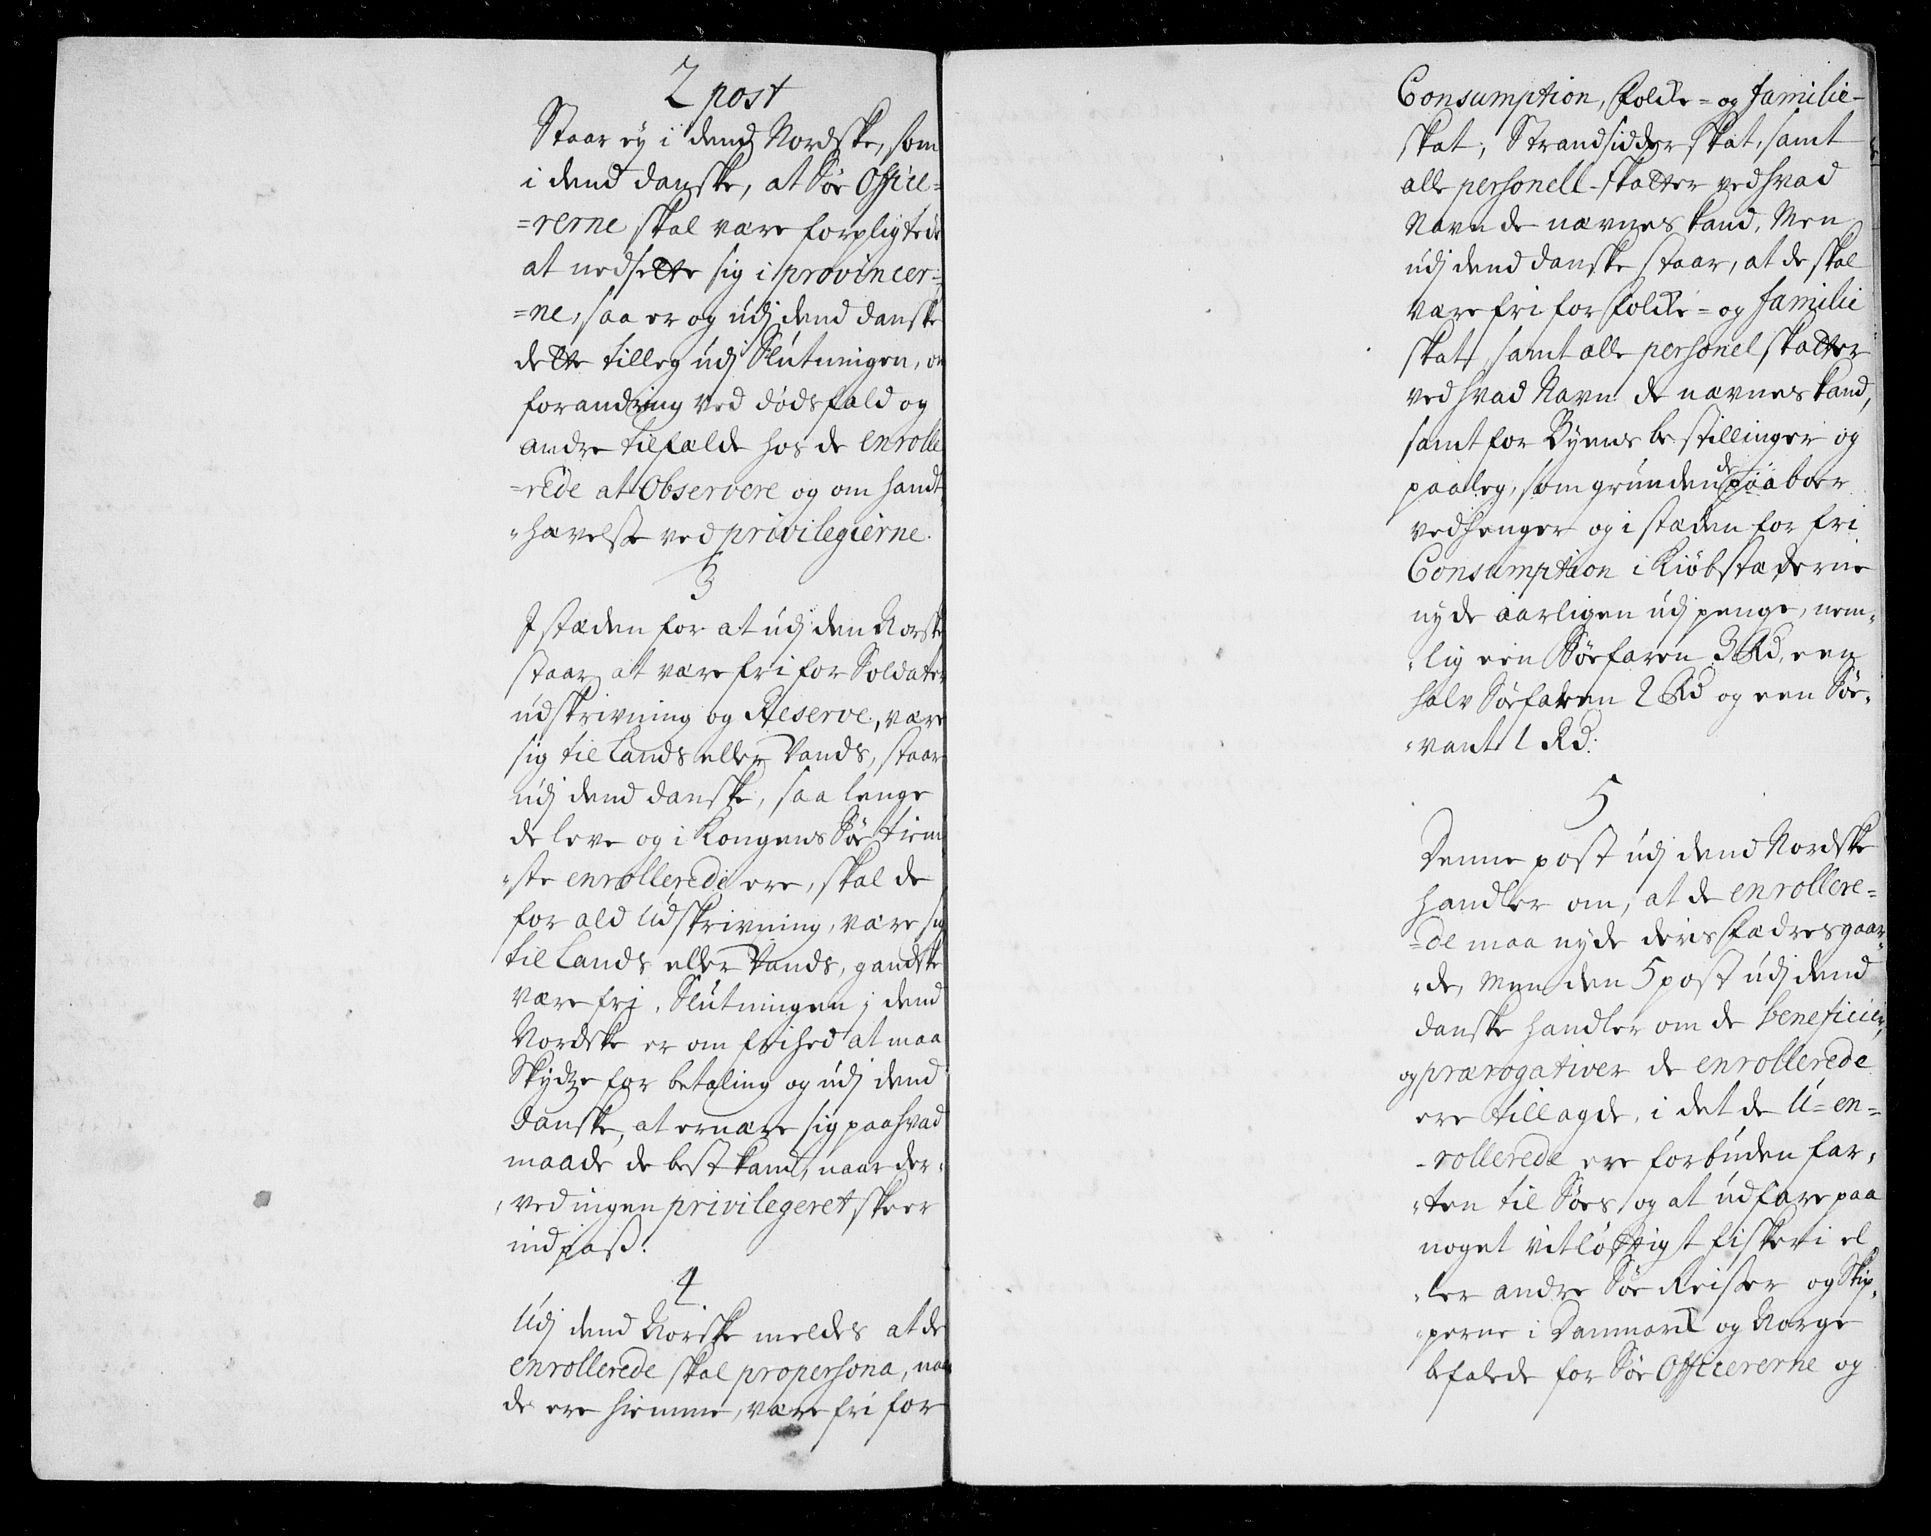 2 post
Staar ey i dend Nordske, som
i dend danske, at Søe Office=
=rerne skal være forpligtede
at nedsette sig i provincer=
=ne, saa er og udj dend danske
dette tilleg udj Slutningen, om
forandring ved dødsfald og
andre tilfælde hos de enrolle
=rede at Observere og om handt
"hævelse ved privilegierne.
3
I stæden for at udj den Norske
staar at være fri for Soldater
udskrivning og Reserve, være
sig til Lands eller Vands, staar
udj dend danske, saa lenge
de leve og i Kongens Søe tiene
"ste enrollerede ere, skal de
for ald Udskrivning, være sig
til Lands eller Vands, gandske
være frj. Slutningen j dend
Nordske er om frihed at maa
Skydze for betaling og udj dend
danske, at ernære sig paa hvad
maade de best kand, naar der=
"ved ingen privilegeret skeer
indpass.
4
Udj dend Norske meldes at de
enrollerede skal propersona, naar
de ere hiemme, være fri for
Consumption, Folke- og familie-
skat, Strandsidder skat, samt
alle personell-skatter ved hvad
Navn de nævnes kand, Men
udj dend danske staar, at de skal
være fri for Folke- og familie
skat, samt alle personel skatter
ved hvad Navn de nævnes kand,
samt for Byens bestillinger og
paaleg, som grunden de paaboer
vedhenger og i stæden for fri
Consumption i Kiøbstæderne
nyde aarligen udj penge, nem=
"lig een Søefaren 3 Rd, een
halv Søefaren 2 Rd og een Søe=
"vant 1 Rd:
5
Denne post udj dend Nordske
handler om, at de enrollere=
=de maa nyde deris Fædres gaar=
"de, Men den 5 post udj dend
danske handler om de beneficier
og prærogativer de enrollerede
ere tillagde, i det de U=en=
-rollerede ere forbuden far=
"ten til Søes og at udfare paa
noget vitløftigt fiskeri el
"ler andre Søe Reiser og Skip=
"perne i Danmark og Norge
befalede for Søe Officererne og